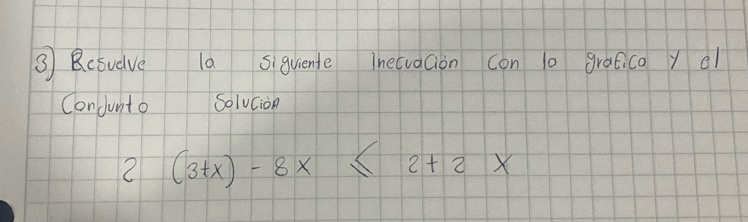 3) Resuelve la siguiente Inecuación con la grafica y el
Conjunto Solución
2 (3+x) - 8x ≤ 2+2 x